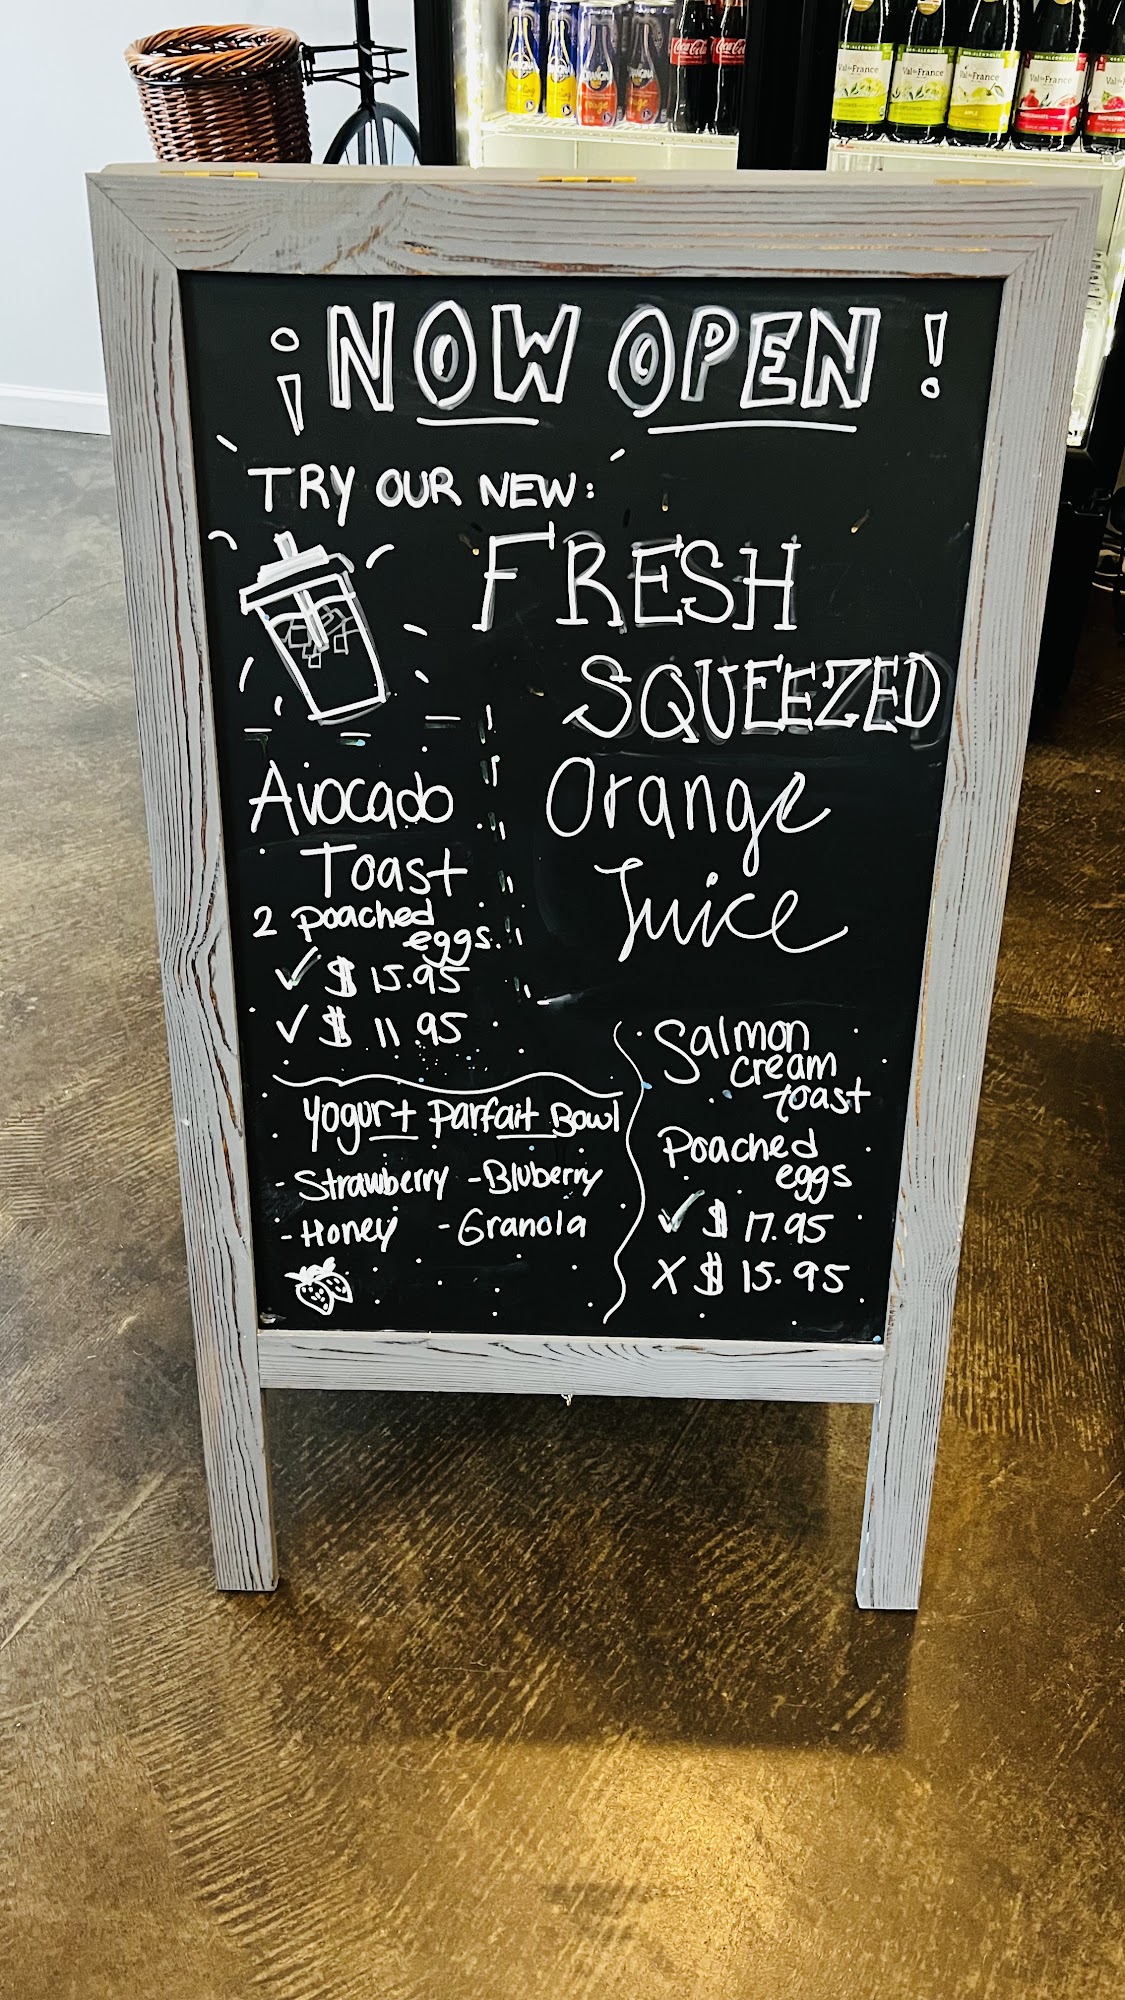 Coca-Cola
Coca-Cola
Val de France
Val de France
Val de France
Val de France
¡NOW OPEN!
TRY OUR NEW:
FRESH
SQUEEZED
Orange
Juice
Avocado
Toast
2 poached
eggs.
✓ $ 15.95
✓ $ 11.95
Yogurt Parfait Bowl
- Strawberry - Bluberry
- Honey - Granola
Salmon
cream
toast
Poached
eggs
✓ $ 17.95
X $ 15.95